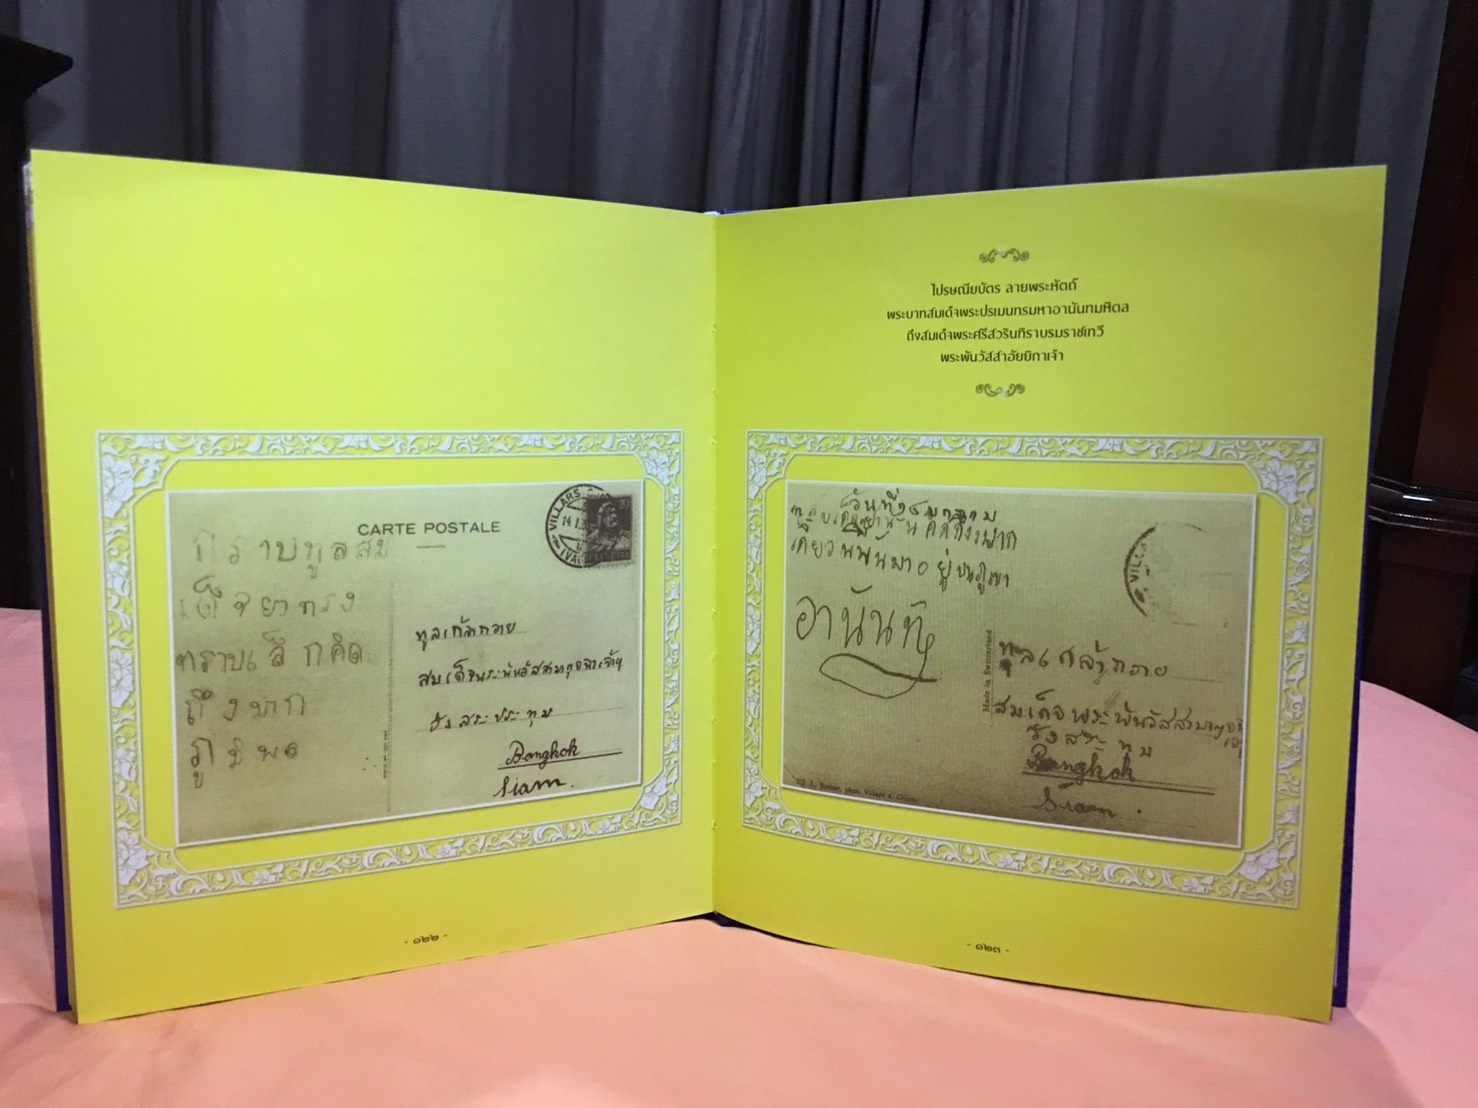 CARTE POSTALE
VILLARS
14 I 3
(VA
20
กราบทูลสม
เด็จย่าทรง
ทราบเล็กคิด
ถึงมาก
ภูมิพล
ทูลเกล้าถวาย
สมเด็จพระพันวัสสามาตุจฉาเจ้าฯ
วังสระปทุม
Bangkok
Siam.
- ๑๒๒ -
ไปรษณียบัตร ลายพระหัตถ์
พระบาทสมเด็จพระปรเมนทรมหาอานันทมหิดล
ถึงสมเด็จพระศรีสวรินทิราบรมราชเทวี
พระพันวัสสาอัยยิกาเจ้า
คิดถึงมาก
เดี๋ยวนี้ นันมาอยู่บนภูเขา
อานันท
VILLA
Made in Switzerland
ทูลเกล้าถวาย
สมเด็จพระพันวัสสามาตุจฉา
เจ้า
วังสระ
ปทุม
Bangkok
Siam.
phot. Villars s. Ollon
- ๑๒๓ -